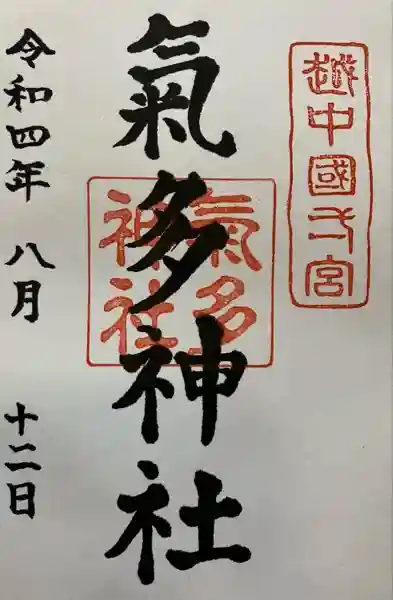 越中國弌宮
氣多神社
氣多
神社
令和四年 八月 十二日